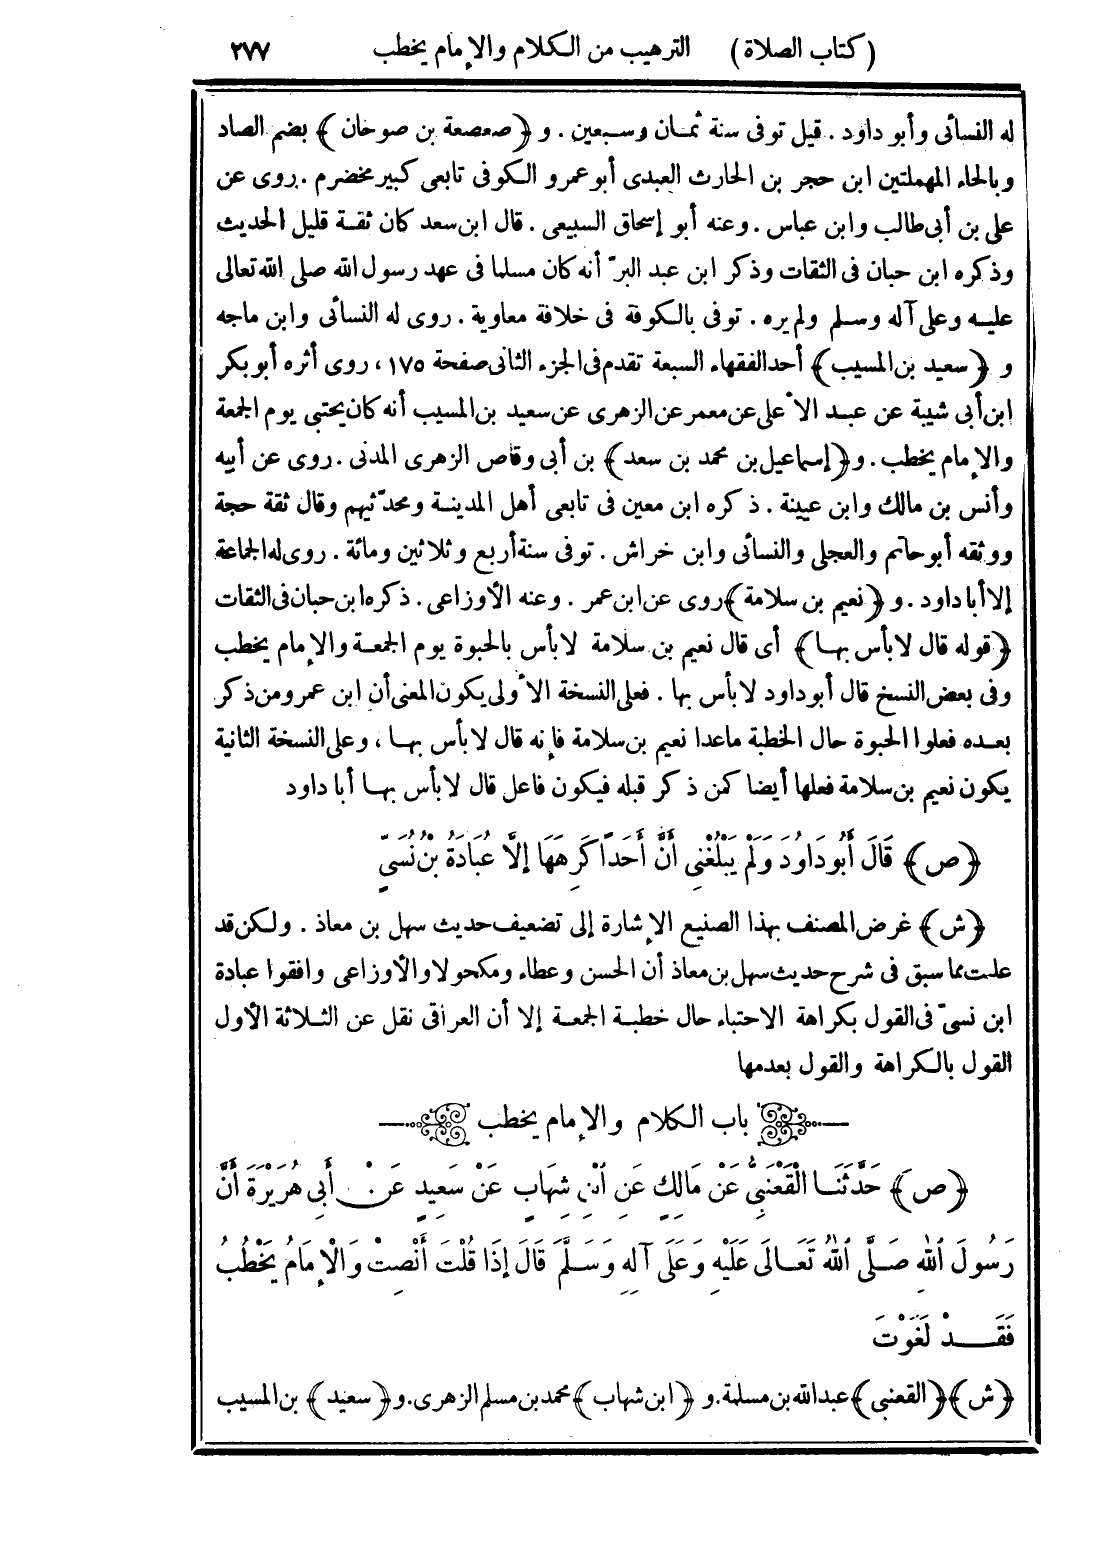 (كتاب الصلاة) الترهيب من الكلام والإمام يخطب ٢٧٧
له النسائى وأبو داود . قيل توفى سنة ثمان وسبعين . و ﴿صعصعة بن صوحان﴾ بضم الصاد
وبالحاء المهملتين ابن حجر بن الحارث العبدى أبو عمرو الكوفى تابعى كبير مخضرم . روى عن
على بن أبى طالب وابن عباس . وعنه أبو إسحاق السبيعى . قال ابن سعد كان ثقة قليل الحديث
وذكره ابن حبان فى الثقات وذكر ابن عبد البرّ أنه كان مسلما فى عهد رسول الله صلى الله تعالى
عليه وعلى آله وسلم ولم يره . توفى بالكوفة فى خلافة معاوية . روى له النسائى وابن ماجه
و ﴿سعيد بن المسيب﴾ أحد الفقهاء السبعة تقدم فى الجزء الثانى صفحة ١٧٥ ، روى أثره أبو بكر
ابن أبى شيبة عن عبد الأعلى عن معمر عن الزهرى عن سعيد بن المسيب أنه كان يحتبى يوم الجمعة
والإمام يخطب . و ﴿إسماعيل بن محمد بن سعد﴾ بن أبى وقاص الزهرى المدنى . روى عن أبيه
وأنس بن مالك وابن عيينة . ذكره ابن معين فى تابعى أهل المدينة ومحدّثيهم وقال ثقة حجة
ووثقه أبو حاتم والعجلى والنسائى وابن خراش . توفى سنة أربع وثلاثين ومائة . روى له الجماعة
إلا أبا داود . و ﴿نعيم بن سلامة﴾ روى عن ابن عمر . وعنه الأوزاعى . ذكره ابن حبان فى الثقات
﴿قوله قال لا بأس بها﴾ أى قال نعيم بن سلامة لا بأس بالحبوة يوم الجمعة والإمام يخطب
وفى بعض النسخ قال أبو داود لا بأس بها . فعلى النسخة الأولى يكون المعنى أن ابن عمر ومن ذكر
بعده فعلوا الحبوة حال الخطبة ماعدا نعيم بن سلامة فإنه قال لا بأس بها ، وعلى النسخة الثانية
يكون نعيم بن سلامة فعلها أيضا كمن ذكر قبله فيكون فاعل قال لا بأس بها أبا داود
﴿ص﴾ قَالَ أَبُو دَاوُدَ وَلَمْ يَبْلُغْنِى أَنَّ أَحَدًا كَرِهَهَا إلَّا عُبَادَةُ بْنُ نُسَىٍّ
﴿ش﴾ غرض المصنف بهذا الصنيع الإشارة إلى تضعيف حديث سهل بن معاذ . ولكن قد
علمت مما سبق فى شرح حديث سهل بن معاذ أن الحسن وعطاء ومكحولا والأوزاعى وافقوا عبادة
ابن نسىّ فى القول بكراهة الاحتباء حال خطبة الجمعة إلا أن العراقى نقل عن الثلاثة الأول
القول بالكراهة والقول بعدمها
باب الكلام والإمام يخطب
﴿ص﴾ حَدَّثَنَا الْقَعْنَبِىُّ عَنْ مَالِكٍ عَنِ ابْنِ شِهَابٍ عَنْ سَعِيدٍ عَنْ أَبِى هُرَيْرَةَ أَنَّ
رَسُولَ اللهِ صَلَّى اللهُ تَعَالَى عَلَيْهِ وَعَلَى آلِهِ وَسَلَّمَ قَالَ إِذَا قُلْتَ أَنْصِتْ وَالْإِمَامُ يَخْطُبُ
فَقَدْ لَغَوْتَ
﴿ش﴾ ﴿القعنبى﴾ عبد الله بن مسلمة . و ﴿ابن شهاب﴾ محمد بن مسلم الزهرى . و ﴿سعيد﴾ بن المسيب